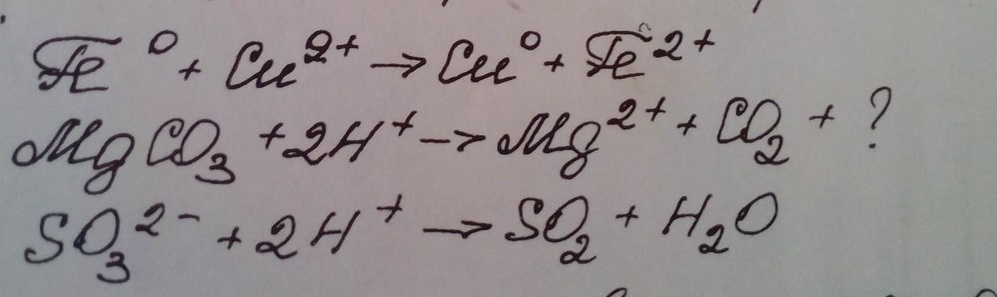 Fe⁰ + Cu²⁺ → Cu⁰ + Fe²⁺
MgCO₃ + 2H⁺ → Mg²⁺ + CO₂ + ?
SO₃²⁻ + 2H⁺ → SO₂ + H₂O